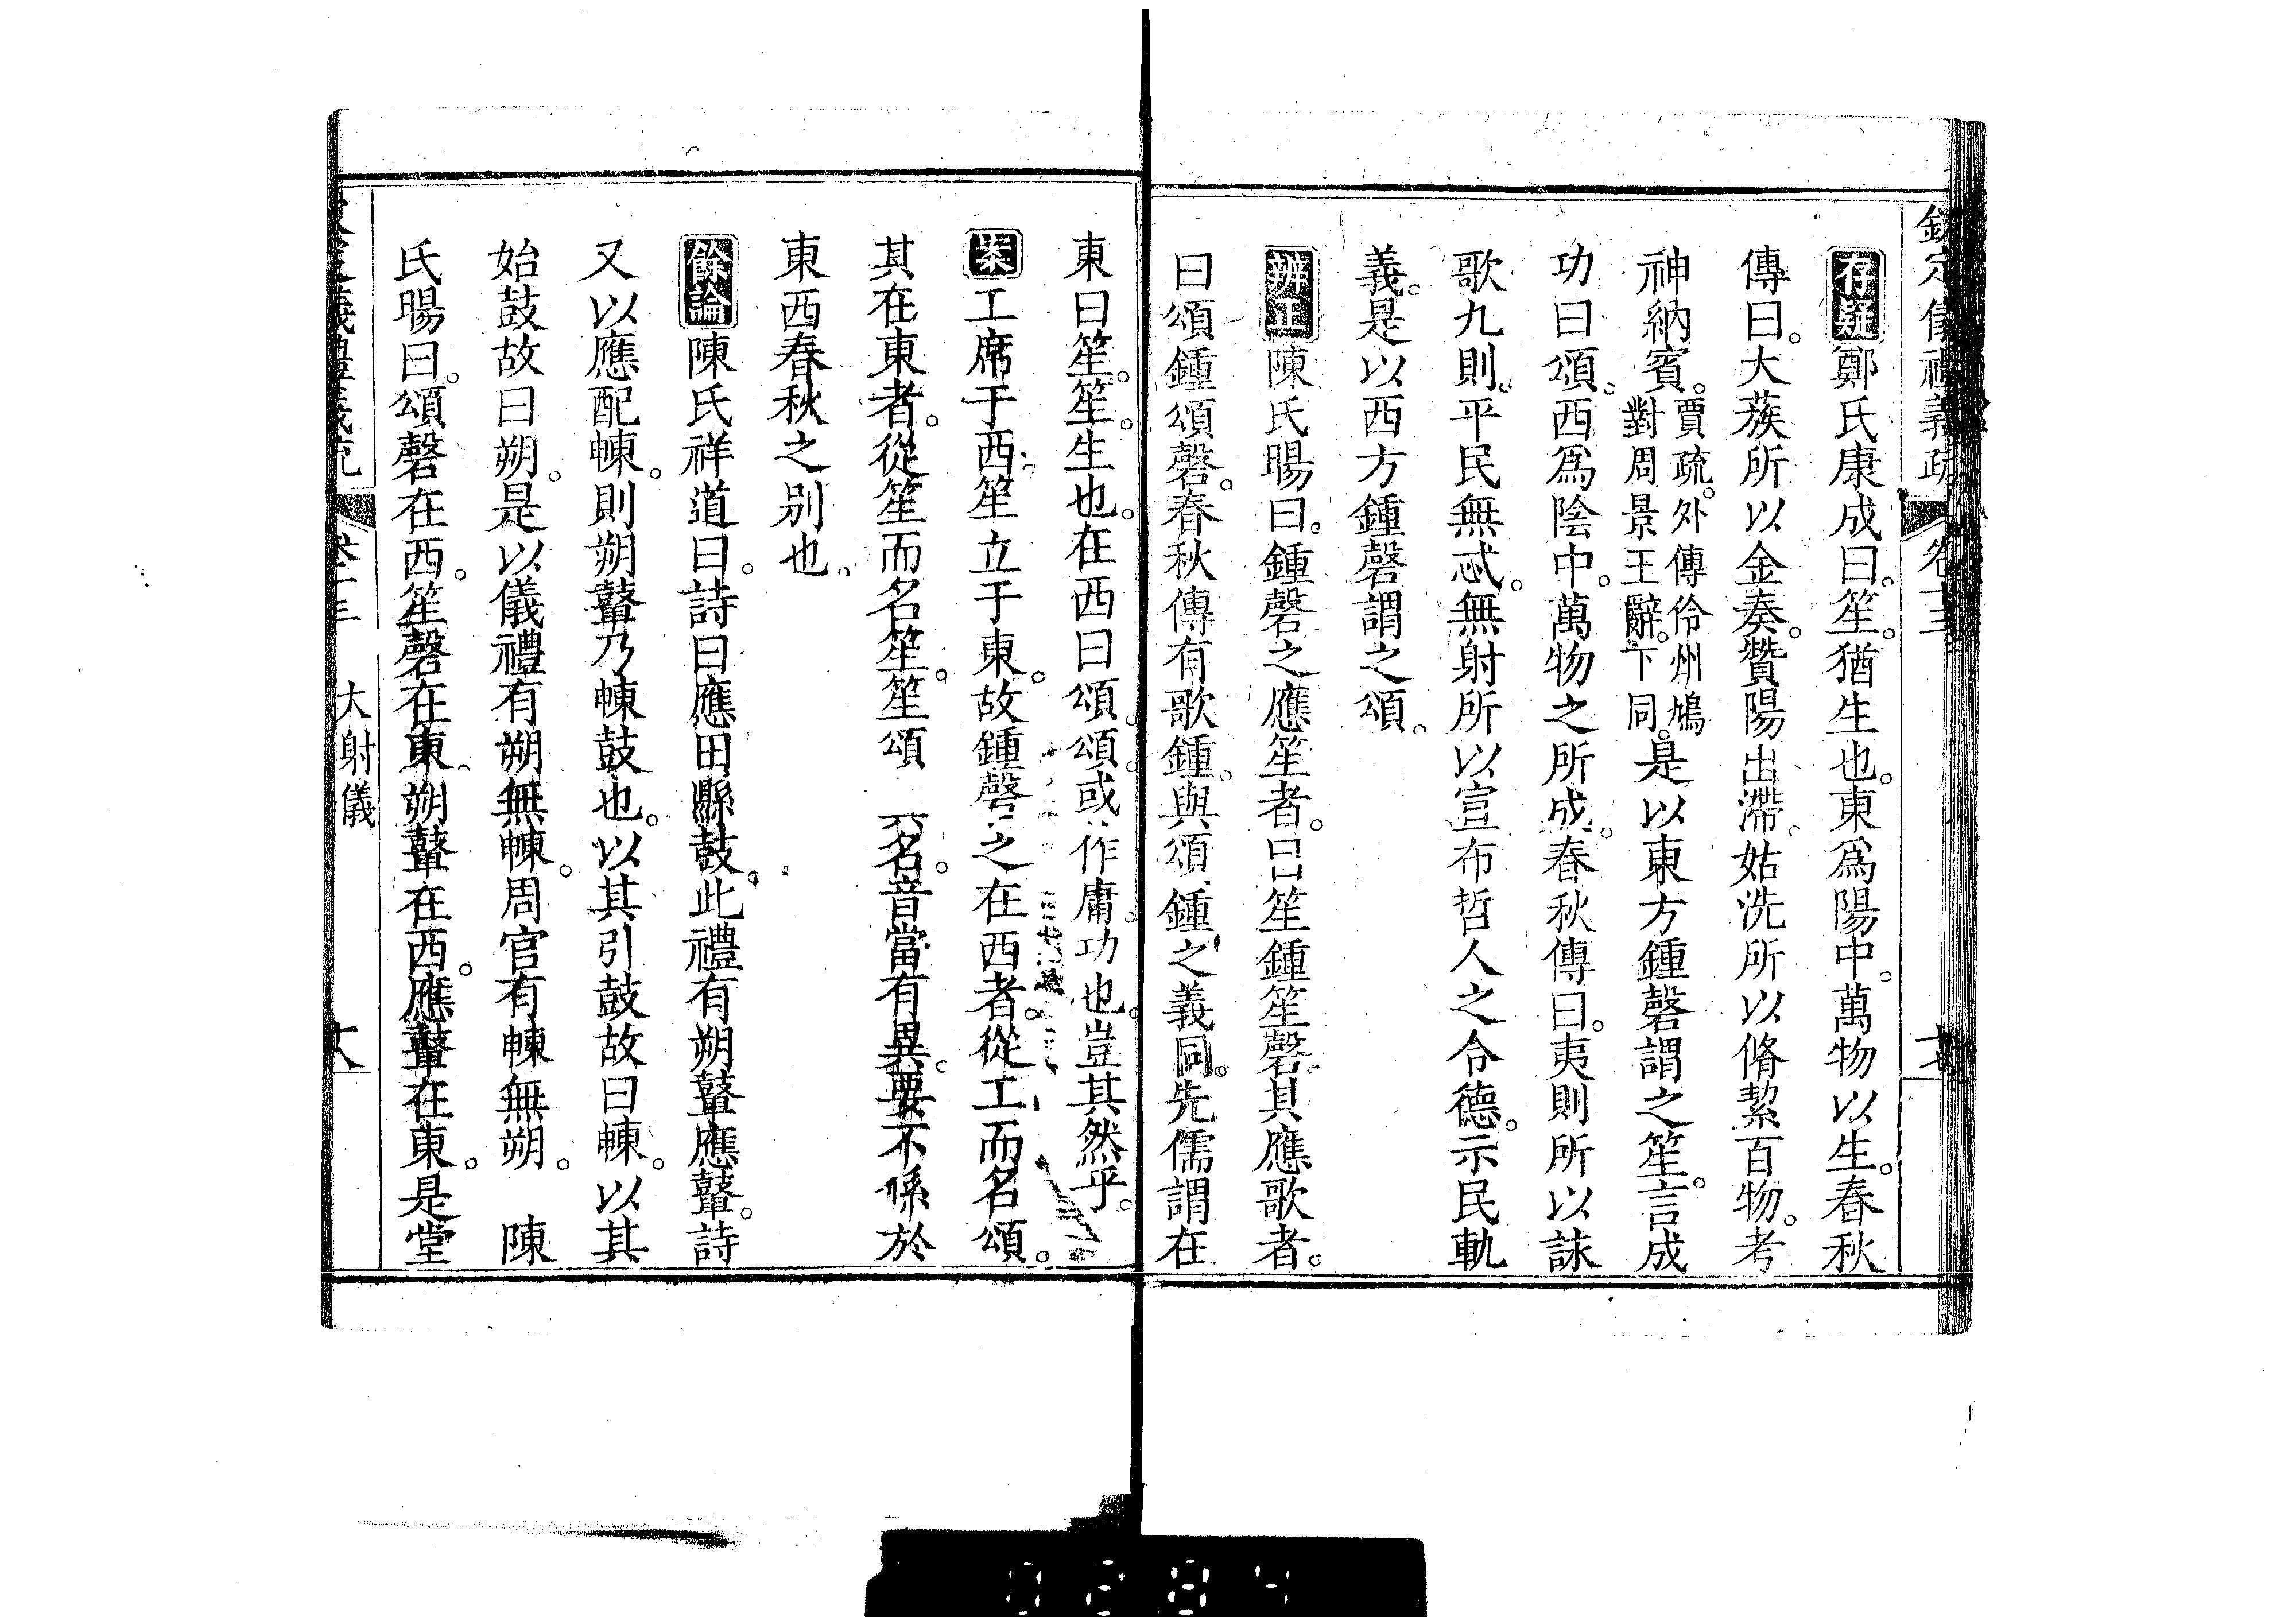 欽定儀禮義疏 卷十三 十七
存疑鄭氏康成曰。笙。猶生也。東爲陽中。萬物以生。春秋
傳曰。大蔟所以金奏。贊陽出滯。姑洗所以脩絜百物。考
神納賓。賈疏。外傳伶州鳩對周景王辭。下同。是以東方鍾磬謂之笙。言成
功曰頌。西爲陰中。萬物之所成。春秋傳曰。夷則所以詠
歌九則。平民無忒。無射所以宣布哲人之令德。示民軌
義。是以西方鍾磬謂之頌。
辨正陳氏暘曰。鍾磬之應笙者。曰笙鍾笙磬。其應歌者。
曰頌鍾頌磬。春秋傳有歌鍾。與頌鍾之義同。先儒謂在
東曰笙。笙。生也。在西曰頌。頌或作庸。功也。豈其然乎。
案工席于西。笙立于東。故鍾磬之在西者。從工而名頌。
其在東者。從笙而名笙。笙頌 名。音當有異。要不係於
東西春秋之别也。
餘論陳氏祥道曰。詩曰應田縣鼓。此禮有朔鼙應鼙。詩
又以應配朄。則朔鼙乃朄鼓也。以其引鼓故曰朄。以其
始鼓故曰朔。是以儀禮有朔無朄。周官有朄無朔。 陳
氏暘曰。頌磬在西。笙磬在東。朔鼙在西。應鼙在東。是堂
義禮義疏 卷十三 大射儀